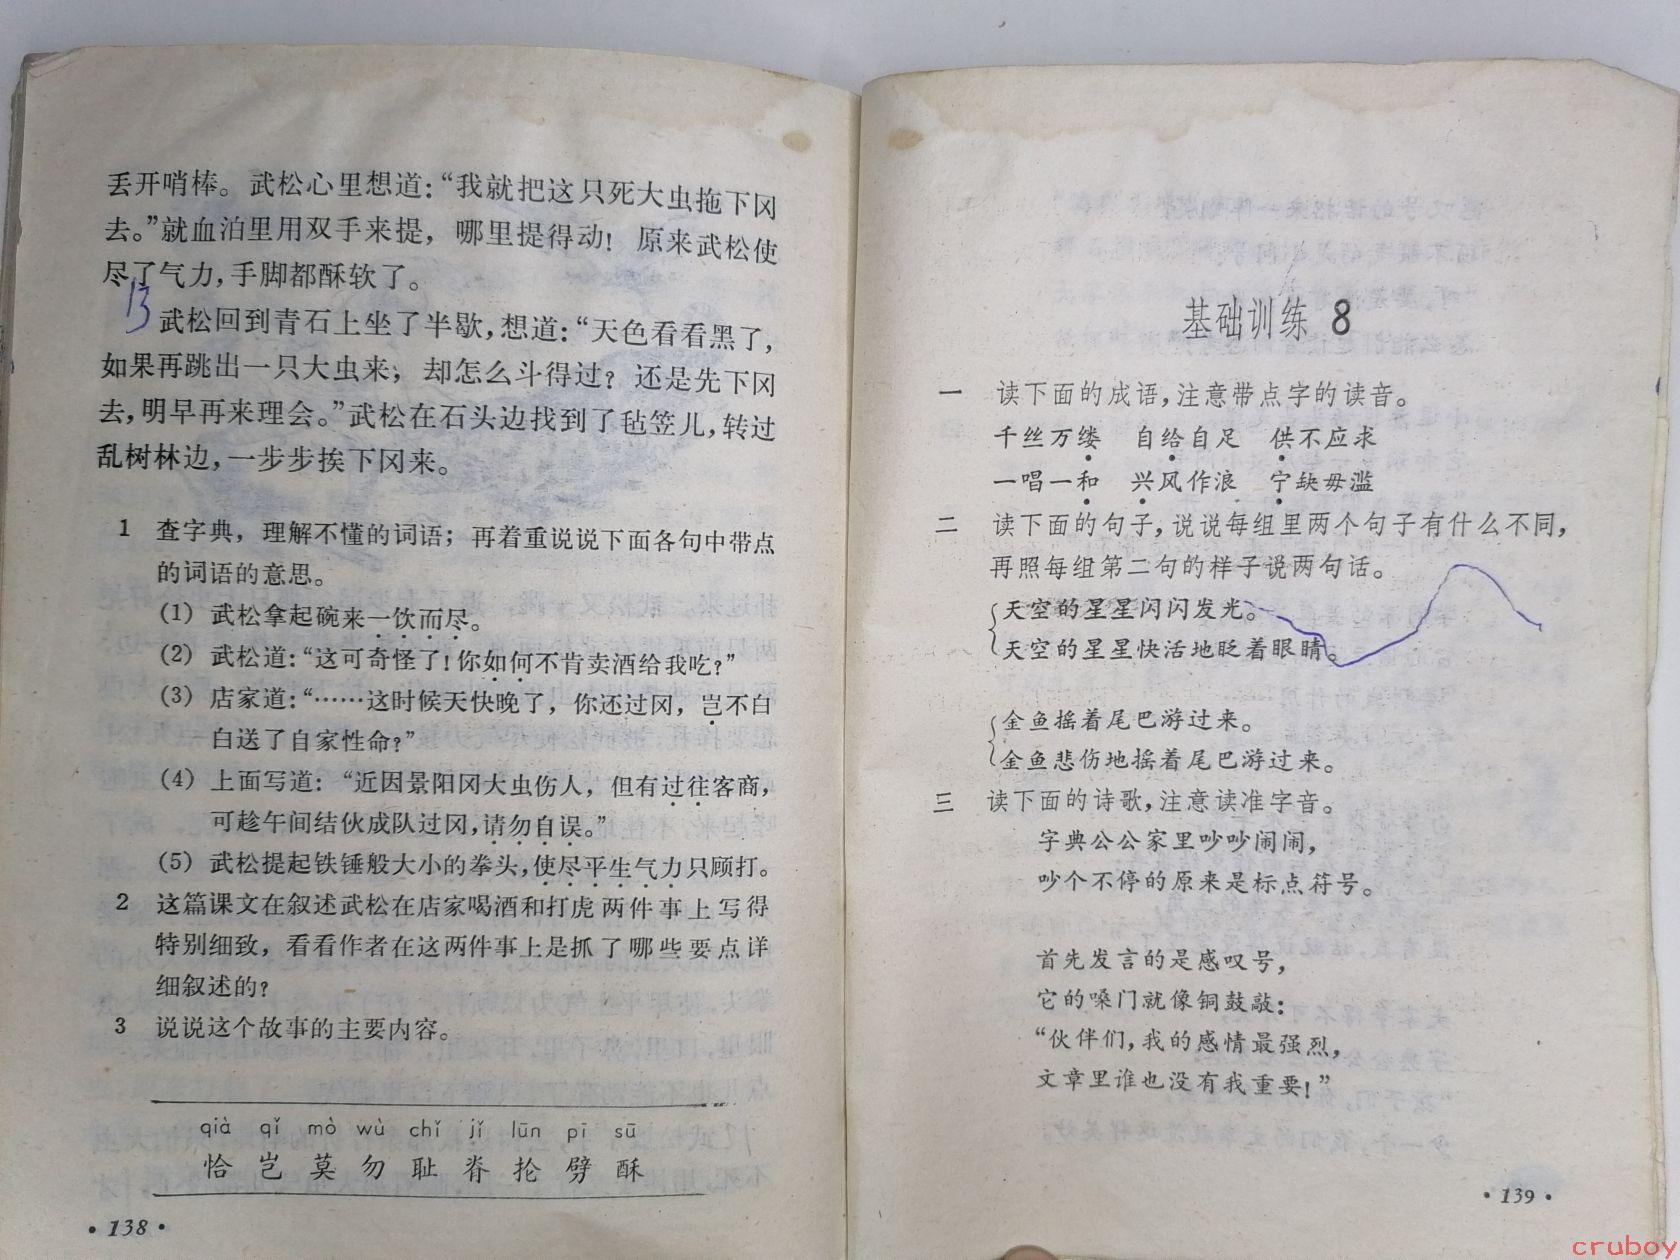 丢开哨棒。武松心里想道：“我就把这只死大虫拖下冈
去。”就血泊里用双手来提，哪里提得动！原来武松使
尽了气力，手脚都酥软了。
13
武松回到青石上坐了半歇，想道：“天色看看黑了，
如果再跳出一只大虫来，却怎么斗得过？还是先下冈
去，明早再来理会。”武松在石头边找到了毡笠儿，转过
乱树林边，一步步挨下冈来。
1 查字典，理解不懂的词语；再着重说说下面各句中带点
的词语的意思。
(1) 武松拿起碗来一饮而尽。
(2) 武松道：“这可奇怪了！你如何不肯卖酒给我吃？”
(3) 店家道：“……这时候天快晚了，你还过冈，岂不白
白送了自家性命？”
(4) 上面写道：“近因景阳冈大虫伤人，但有过往客商，
可趁午间结伙成队过冈，请勿自误。”
(5) 武松提起铁锤般大小的拳头，使尽平生气力只顾打。
2 这篇课文在叙述武松在店家喝酒和打虎两件事上写得
特别细致，看看作者在这两件事上是抓了哪些要点详
细叙述的？
3 说说这个故事的主要内容。
qià qǐ mò wù chǐ jǐ lūn pī sū
恰 岂 莫 勿 耻 脊 抡 劈 酥
·138·
基础训练 8
一 读下面的成语，注意带点字的读音。
千丝万缕 自给自足 供不应求
一唱一和 兴风作浪 宁缺毋滥
二 读下面的句子，说说每组里两个句子有什么不同，
再照每组第二句的样子说两句话。
天空的星星闪闪发光。
天空的星星快活地眨着眼睛。
金鱼摇着尾巴游过来。
金鱼悲伤地摇着尾巴游过来。
三 读下面的诗歌，注意读准字音。
字典公公家里吵吵闹闹，
吵个不停的原来是标点符号。
首先发言的是感叹号，
它的嗓门就像铜鼓敲：
“伙伴们，我的感情最强烈，
文章里谁也没有我重要！”
·139·
cruboy